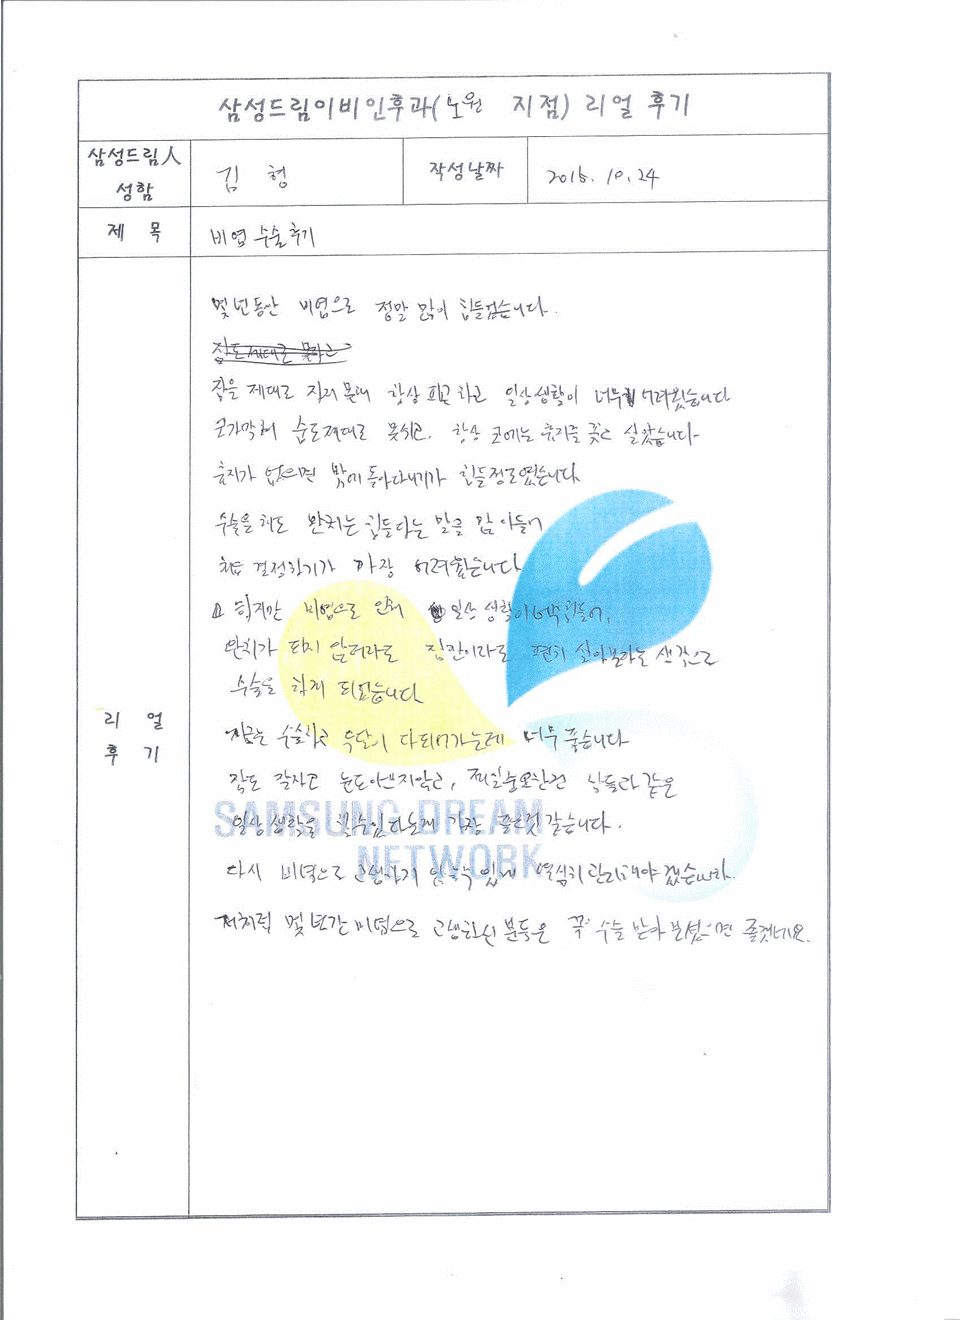 삼성드림이비인후과(노원 지점) 리얼 후기
삼성드림人 성함
김 형
작성날짜
2015. 10. 24
제 목
비염 수술 후기
리 얼 후 기
몇년동안 비염으로 정말 많이 힘들었습니다.
잠도 제대로 못자고
잠을 제대로 자지 못해 항상 피곤하고 일상생활이 너무 어려웠습니다
코가막혀 숨도제대로 못쉬고, 항상 코에는 휴지를 꽂고 살았습니다
휴지가 없으면 밖에 돌아다니기가 힘들정도였습니다
수술을 해도 완치는 힘들다는 말을 많이들어
결정하기가 가장 어려웠습니다
하지만 비염으로 인해 일상생활이 너무힘들어,
완치가 되지 않더라도 잠깐이라도 편히 살아보자는 생각으로
수술을 하게 되었습니다
지금은 수술하고 두달이 다되어가는데 너무 좋습니다
잠도 잘자고 눈도아프지않고, 제일중요한건 남들과 같은
일상생활을 할수있다는게 가장 좋은것 같습니다.
다시 비염으로 고생하지 않을수 있게 열심히 관리해야 겠습니다.
저처럼 몇 년간 비염으로 고생하신 분들은 꼭 수술 받아 보셨으면 좋겠네요.
SAMSUNG DREAM
NETWORK